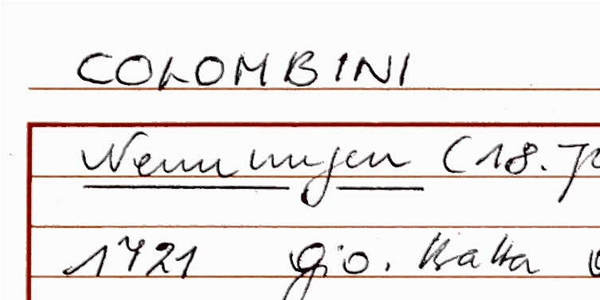 COLOMBINI
Nennungen (18.
1721 Gio. Batta